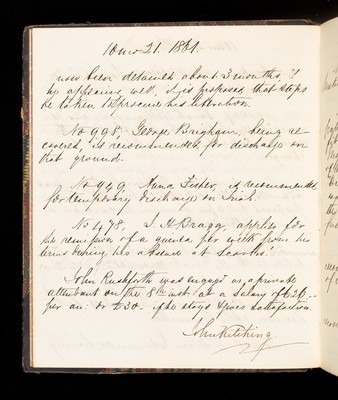 10 mo 21. 1861.
now been detained about 3 months, &
he appearing well, it is proposed that steps
be taken to procure his liberation.
No 998, George Brigham, being re-
covered, is recommended for discharge on
that ground.
No 949 Anna Fisher, is recommended
for temporary discharge on trial.
No 478, J. H. Bragg, applies for
the remission of a guinea per week from his
terms during his absence at Scarbro.
John Rushforth was engaged as a private
attendant on the 8th inst. at a salary of £26 -
per an. or £30 - if he stays & gives satisfaction.
John Kitching